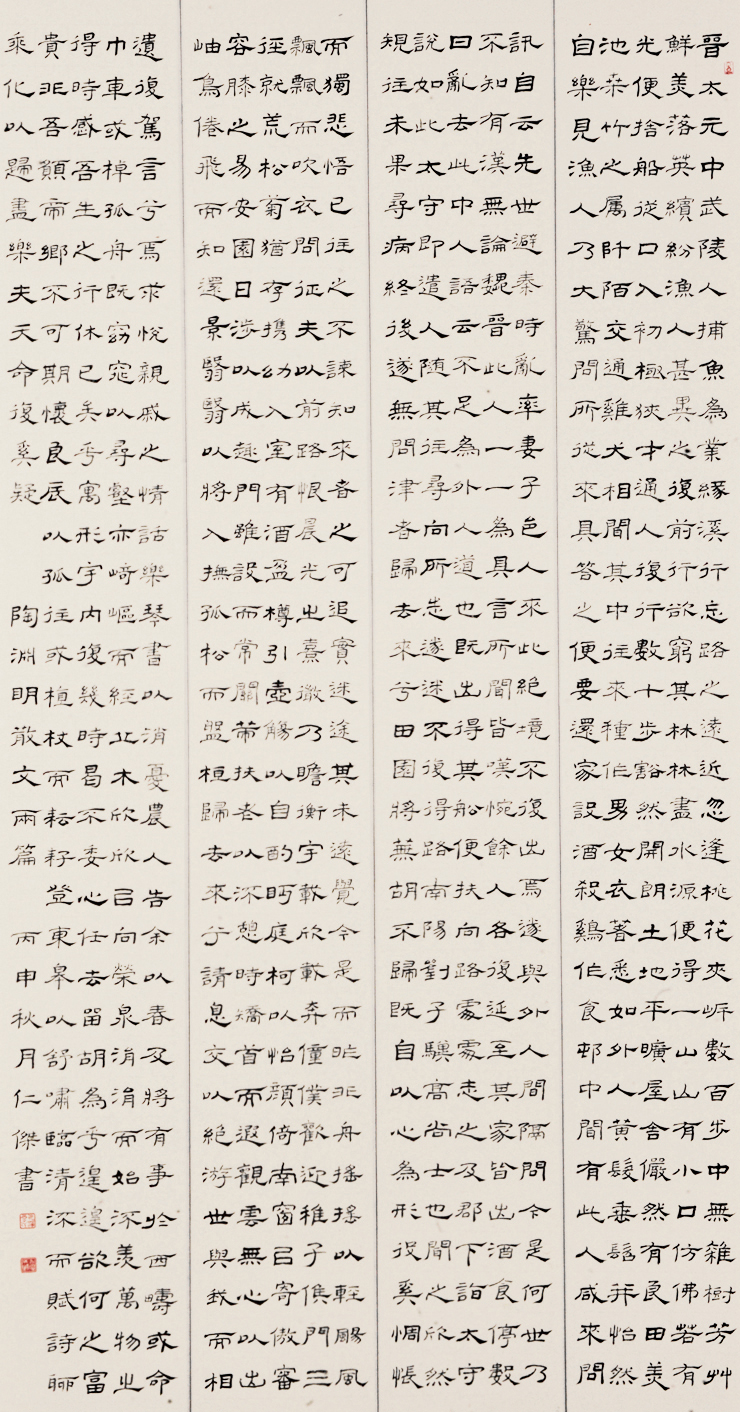 晋太元中武陵人捕魚為業緣溪行忘路之遠近忽逢桃花夾岸數百步中無雜樹芳艸
鮮美落英繽紛漁人甚異之復前行欲窮其林林盡水源便得一山山有小口仿佛若有
光便捨船從口入初極狹才通人復行數十步豁然開朗土地平曠屋舍儼然有良田美
池桑竹之属阡陌交通雞犬相聞其中往來種作男女衣著悉如外人黄髮垂髫并怡然
自樂見漁人乃大驚問所從來具答之便要還家設酒殺鷄作食邨中聞有此人咸來問
訊自云先世避秦時亂率妻子邑人來此絕境不復出焉遂與外人間隔問今是何世乃
不知有漢無論魏晉此人一一為具言所聞皆嘆惋餘人各復延至其家皆出酒食停數
日亂去此中人語云不足為外人道也既出得其船便扶向路處處志之及郡下詣太守
說如此太守即遣人随其往尋向所志遂迷不復得路南陽劉子驥高尚士也聞之欣然
規往未果尋病終後遂無問津者歸去來兮田園將蕪胡不歸既自以心為形役奚惆悵
而獨悲悟已往之不諫知來者之可追實迷途其未遠覺今是而昨非舟搖搖以輕颺風
飄飄而吹衣問征夫以前路恨晨光之熹微乃瞻衡宇載欣載奔僮僕歡迎稚子候門三
徑就荒松菊猶存携幼入室有酒盈樽引壺觴以自酌眄庭柯以怡顏倚南窗以寄傲審
容膝之易安園日涉以成趣門雖設而常關策扶老以流憩時矯首而遐觀雲無心以出
岫鳥倦飛而知還景翳翳以將入撫孤松而盤桓歸去來兮請息交以絕游世與我而相
遺復駕言兮焉求悅親戚之情話樂琴書以消憂農人告余以春及將有事於西疇或命
巾車或棹孤舟既窈窕以尋壑亦崎嶇而經丘木欣欣以向榮泉涓涓而始流羨萬物之
得時感吾生之行休已矣乎寓形宇内復幾時曷不委心任去留胡為乎遑遑欲何之富
貴非吾願帝鄉不可期懷良辰以孤往或植杖而耘耔登東皋以舒嘯臨清流而賦詩聊
乘化以歸盡樂夫天命復奚疑 陶淵明散文兩篇 丙申秋月仁傑書